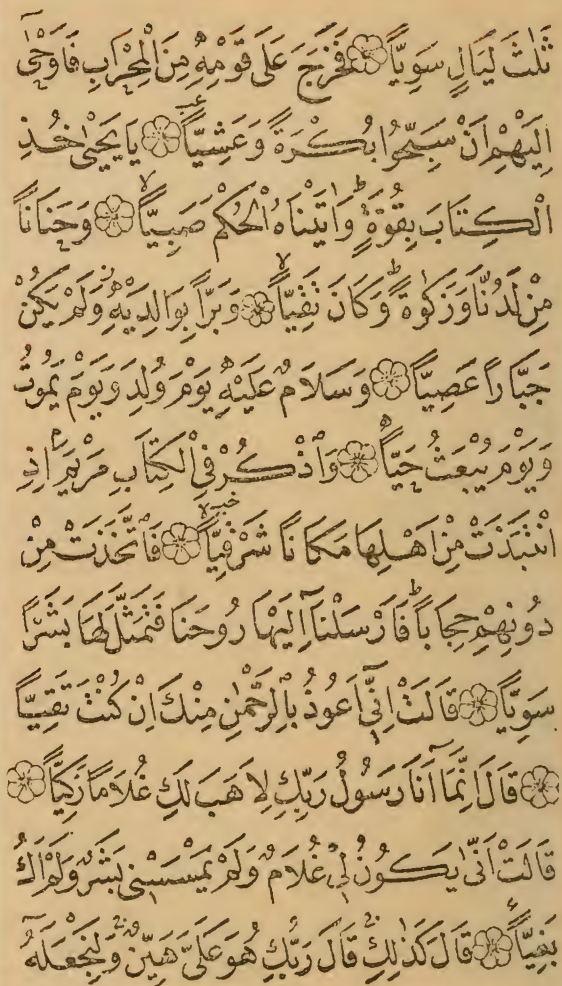 ثَلٰثَ لَيَالٍ سَوِيًّا ۞ فَخَرَجَ عَلٰى قَوْمِهٖ مِنَ الْمِحْرَابِ فَاَوْحٰٓى
اِلَيْهِمْ اَنْ سَبِّحُوا بُكْرَةً وَعَشِيًّا ۞ يَا يَحْيٰى خُذِ
الْكِتَابَ بِقُوَّةٍ وَاٰتَيْنَاهُ الْحُكْمَ صَبِيًّا ۞ وَحَنَانًا
مِنْ لَدُنَّا وَزَكٰوةً وَكَانَ تَقِيًّا ۞ وَبَرًّا بِوَالِدَيْهِ وَلَمْ يَكُنْ
جَبَّارًا عَصِيًّا ۞ وَسَلَامٌ عَلَيْهِ يَوْمَ وُلِدَ وَيَوْمَ يَمُوتُ
وَيَوْمَ يُبْعَثُ حَيًّا ۞ وَاذْكُرْ فِى الْكِتَابِ مَرْيَمَ اِذِ
انْتَبَذَتْ مِنْ اَهْلِهَا مَكَانًا شَرْقِيًّا ۞ فَاتَّخَذَتْ مِنْ
دُونِهِمْ حِجَابًا فَاَرْسَلْنَٓا اِلَيْهَا رُوحَنَا فَتَمَثَّلَ لَهَا بَشَرًا
سَوِيًّا ۞ قَالَتْ اِنِّٓى اَعُوذُ بِالرَّحْمٰنِ مِنْكَ اِنْ كُنْتَ تَقِيًّا
۞ قَالَ اِنَّمَٓا اَنَا رَسُولُ رَبِّكِ لِاَهَبَ لَكِ غُلَامًا زَكِيًّا ۞
قَالَتْ اَنّٰى يَكُونُ لِى غُلَامٌ وَلَمْ يَمْسَسْنِى بَشَرٌ وَلَمْ اَكُ
بَغِيًّا ۞ قَالَ كَذٰلِكِ قَالَ رَبُّكِ هُوَ عَلَىَّ هَيِّنٌ وَلِنَجْعَلَهُٓ